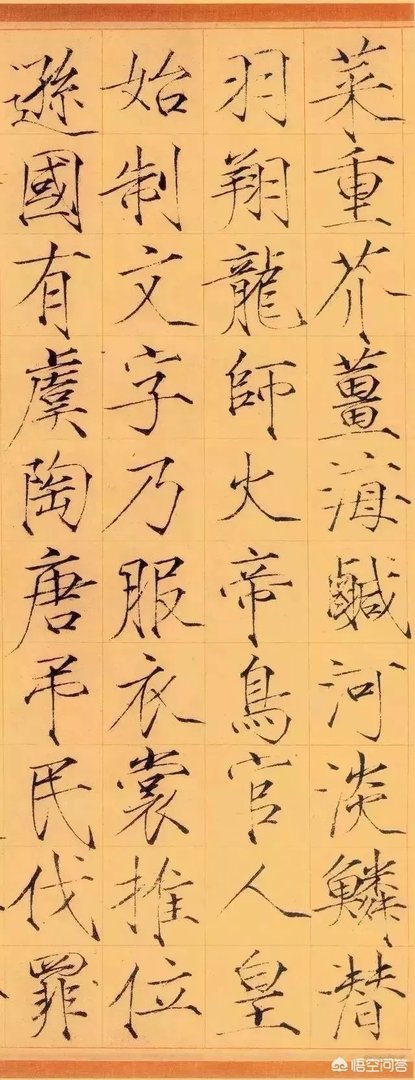 菜重芥薑海鹹河淡鱗潜
羽翔龍師火帝鳥官人皇
始制文字乃服衣裳推位
遜國有虞陶唐吊民伐罪
悟空问答